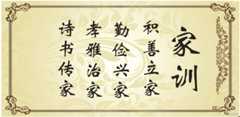 家训
积善立家
勤俭兴家
孝雅治家
诗书传家